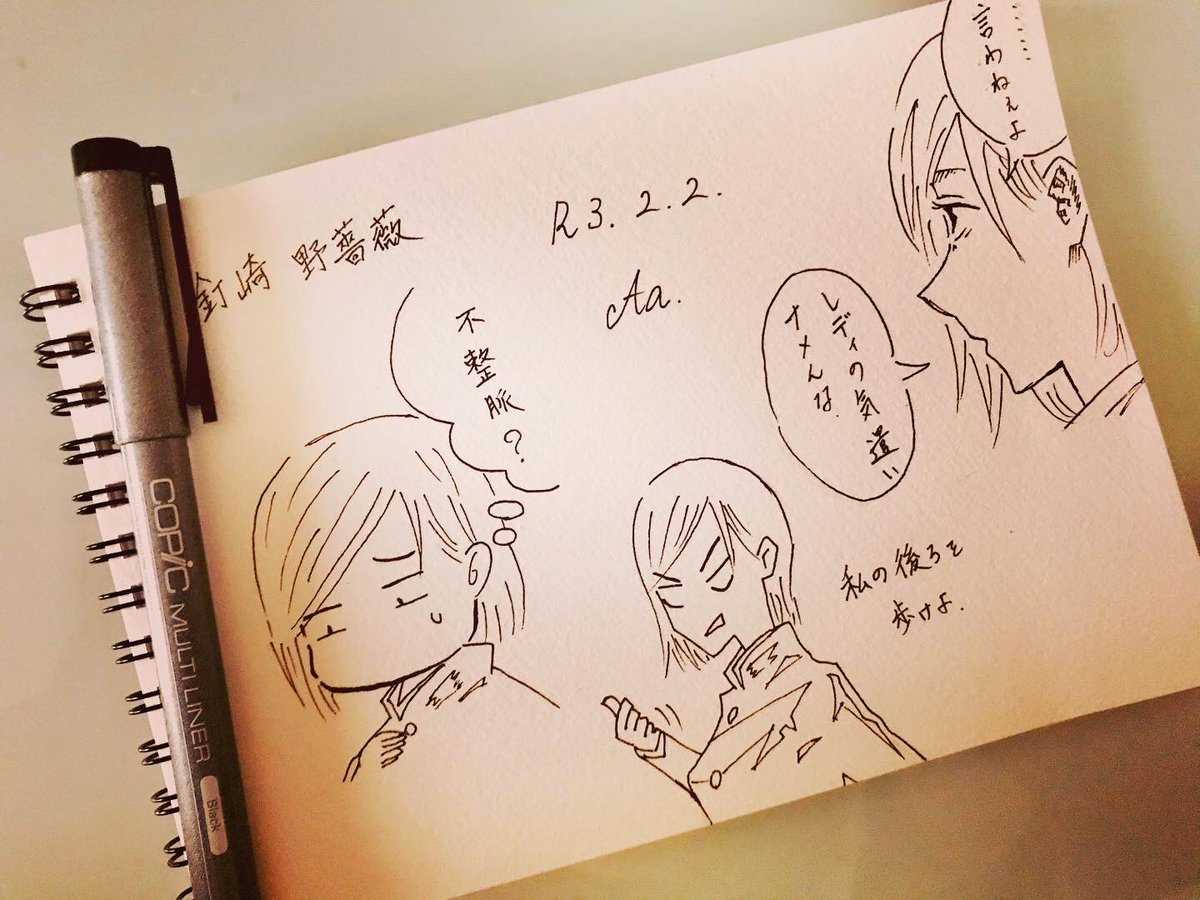 釘崎 野薔薇
R3.2.2.
Aa.
……
言わねぇよ
レディの気遣い
ナメんな.
不整脈?
私の後ろを
歩けよ.
COPIC MULTI LINER
Black